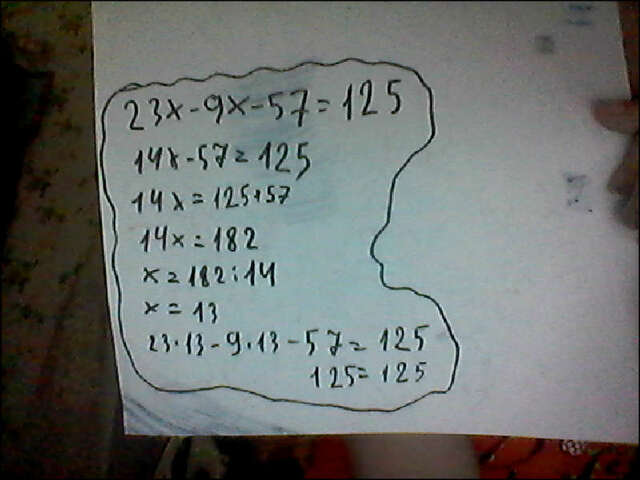 23x-9x-57=125
14x-57=125
14x=125+57
14x=182
x=182:14
x=13
23·13-9·13-57=125
125=125